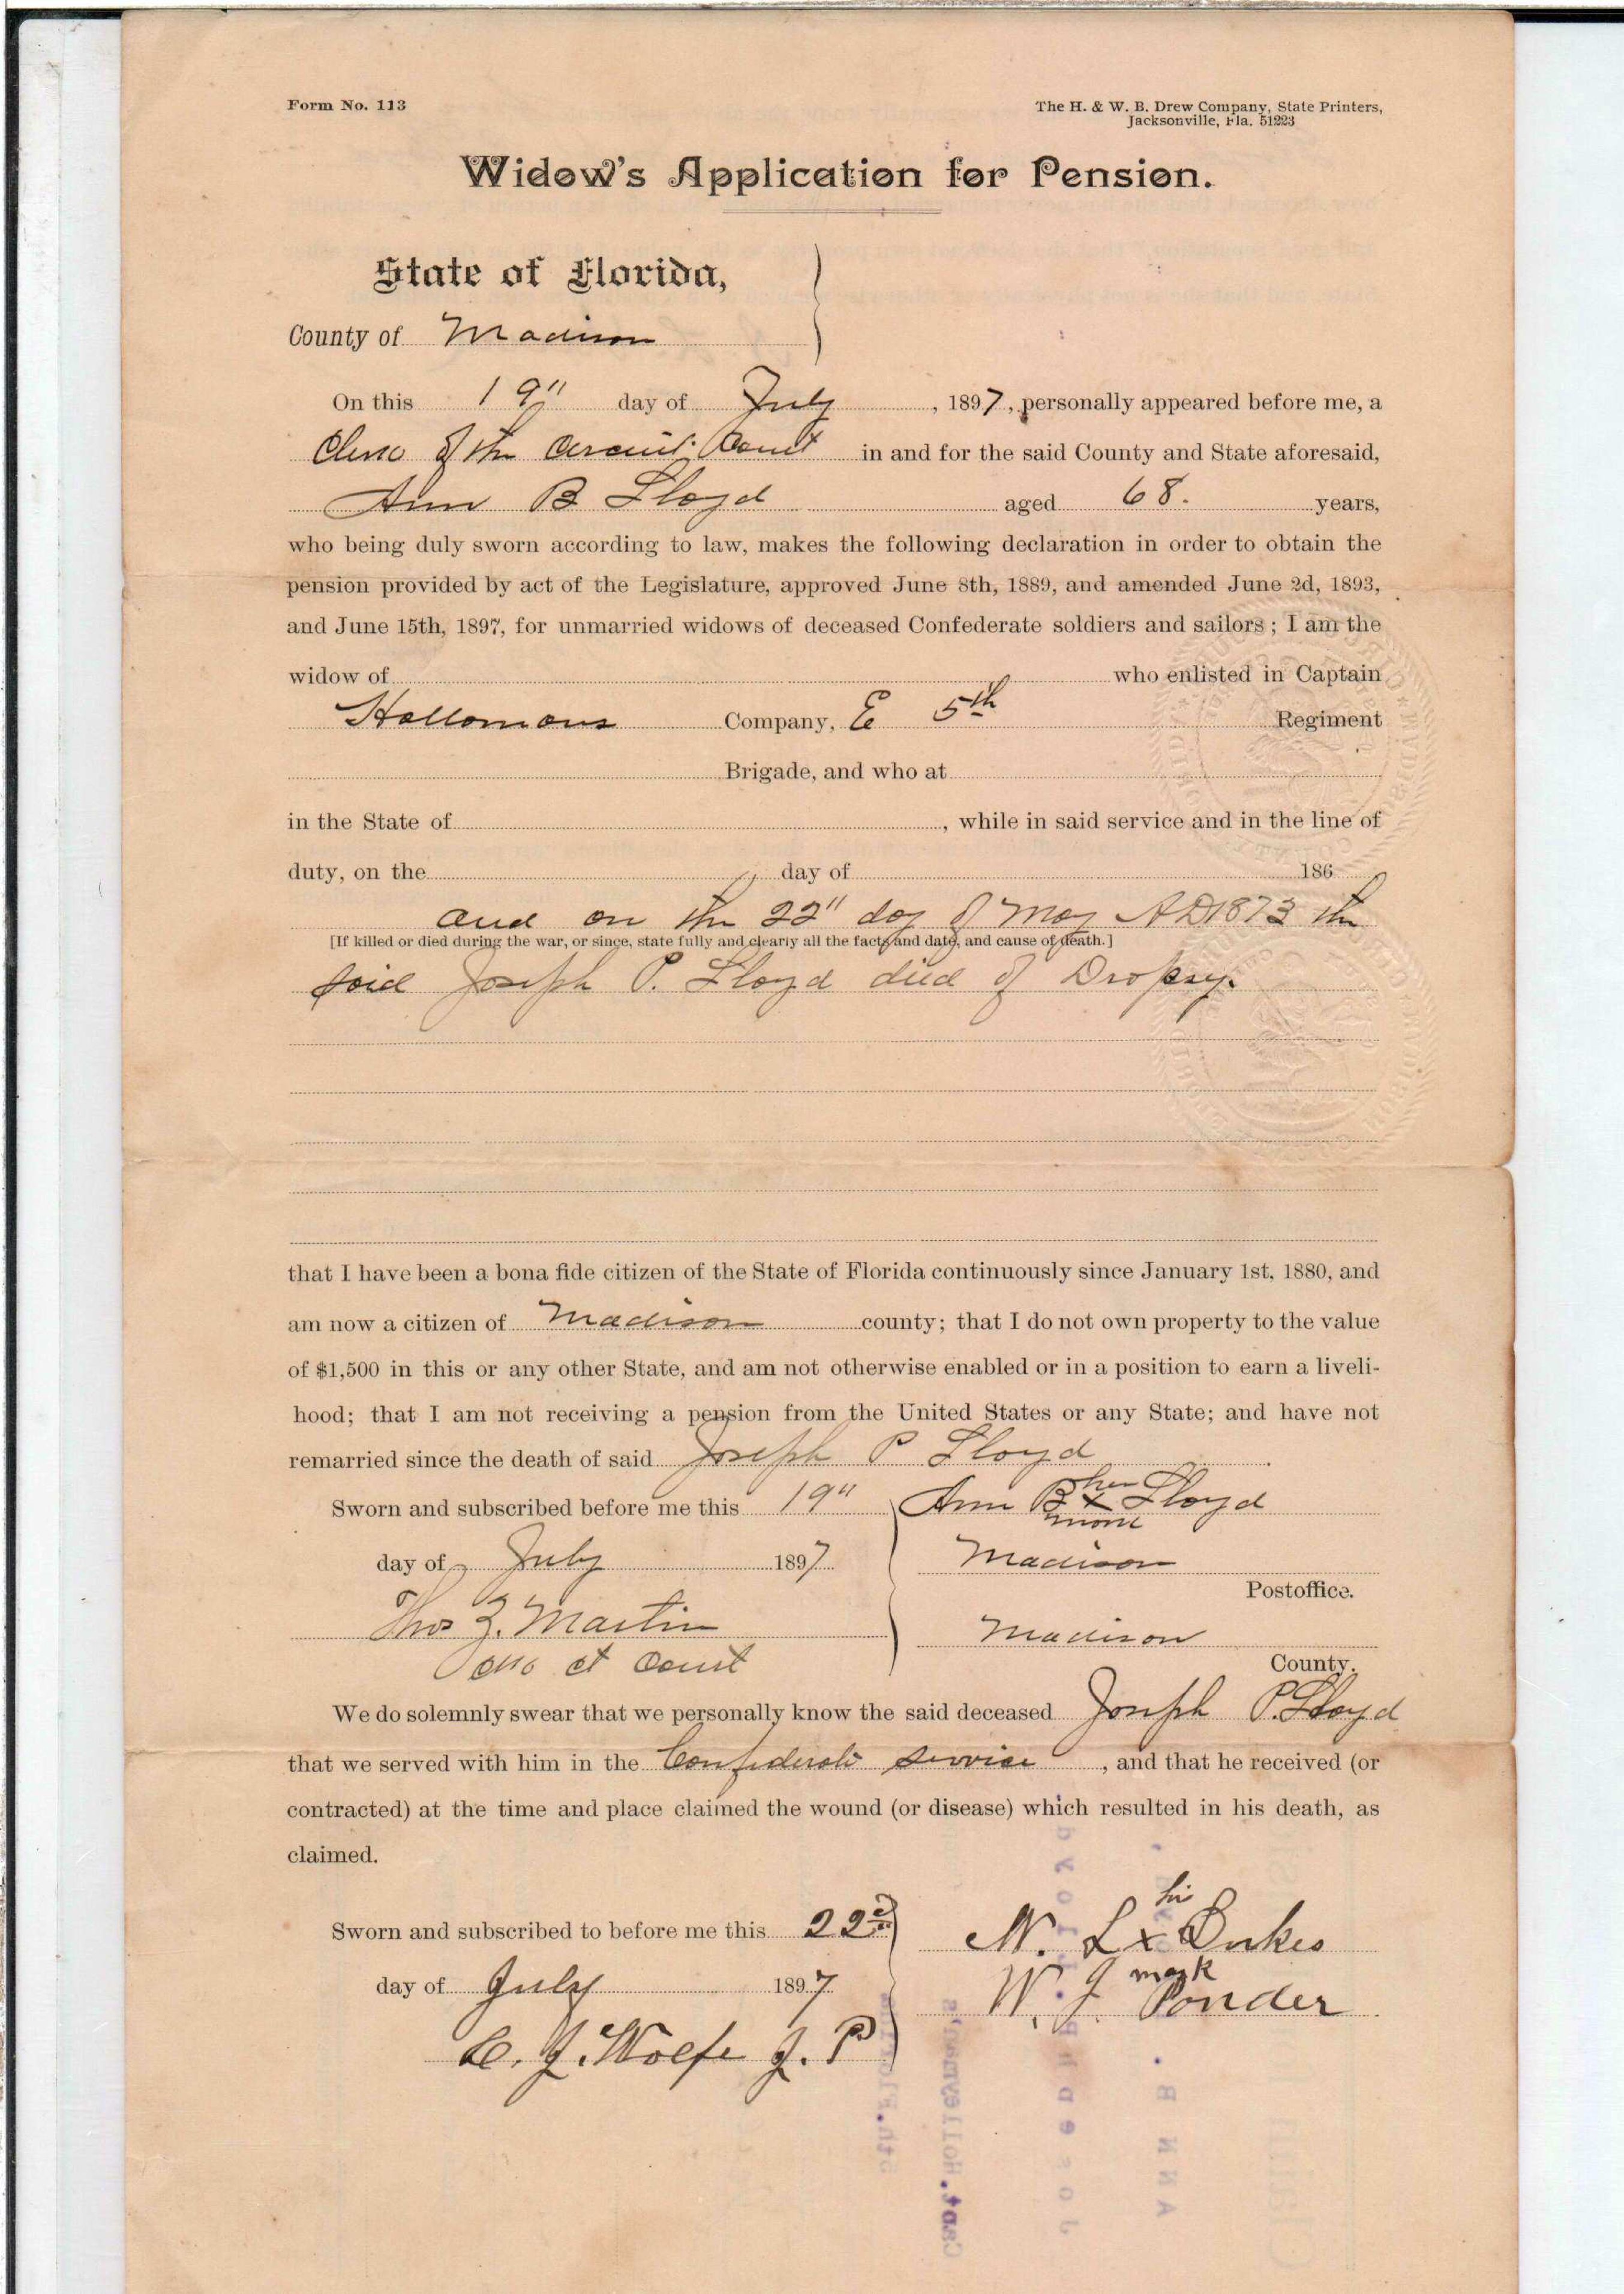 Form No. 113
The H. & W. B. Drew Company, State Printers,
Jacksonville, Fla. 51223
Widow's Application for Pension.
State of Florida,
County of Madison
On this 19" day of July, 1897, personally appeared before me, a
Clerk of the Circuit Court in and for the said County and State aforesaid,
Ann B Lloyd aged 68. years,
who being duly sworn according to law, makes the following declaration in order to obtain the
pension provided by act of the Legislature, approved June 8th, 1889, and amended June 2d, 1893,
and June 15th, 1897, for unmarried widows of deceased Confederate soldiers and sailors; I am the
widow of who enlisted in Captain
Hollomans Company, E 5th Regiment
Brigade, and who at
in the State of , while in said service and in the line of
duty, on the day of 186
and on the 22" day of May AD 1873 the
[If killed or died during the war, or since, state fully and clearly all the facts and date, and cause of death.]
said Joseph P. Lloyd died of Dropsy.
that I have been a bona fide citizen of the State of Florida continuously since January 1st, 1880, and
am now a citizen of Madison county; that I do not own property to the value
of $1,500 in this or any other State, and am not otherwise enabled or in a position to earn a liveli-
hood; that I am not receiving a pension from the United States or any State; and have not
remarried since the death of said Joseph P Lloyd
Sworn and subscribed before me this 19" Ann B her x mark Lloyd
day of July 1897 Madison
Postoffice.
Thos Z. Martin Madison
Clk Ct Court County.
We do solemnly swear that we personally know the said deceased Joseph P. Lloyd
that we served with him in the Confederate service, and that he received (or
contracted) at the time and place claimed the wound (or disease) which resulted in his death, as
claimed.
Sworn and subscribed to before me this 22d N. L his x mark Dukes
day of July 1897 W. J. Ponder
C. J. Wolfe J. P